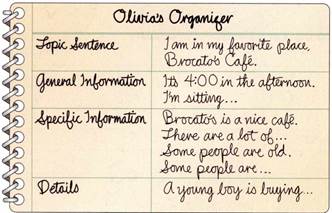 Olivia's Organizer
Topic Sentence
I am in my favorite place,
Brocato's Café.
General Information
It's 4:00 in the afternoon.
I'm sitting...
Specific Information
Brocato's is a nice café.
There are a lot of...
Some people are old.
Some people are...
Details
A young boy is buying...